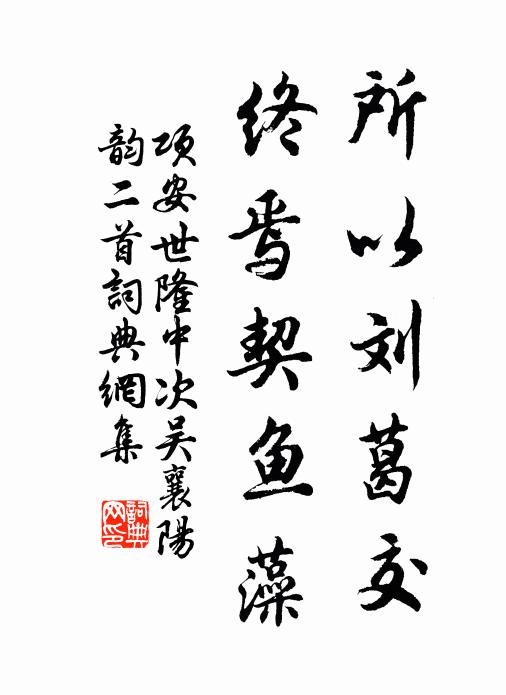 所以刘葛交
终焉契鱼藻
项安世隆中次吴襄陽
韵二首詞典網集
詞典网印